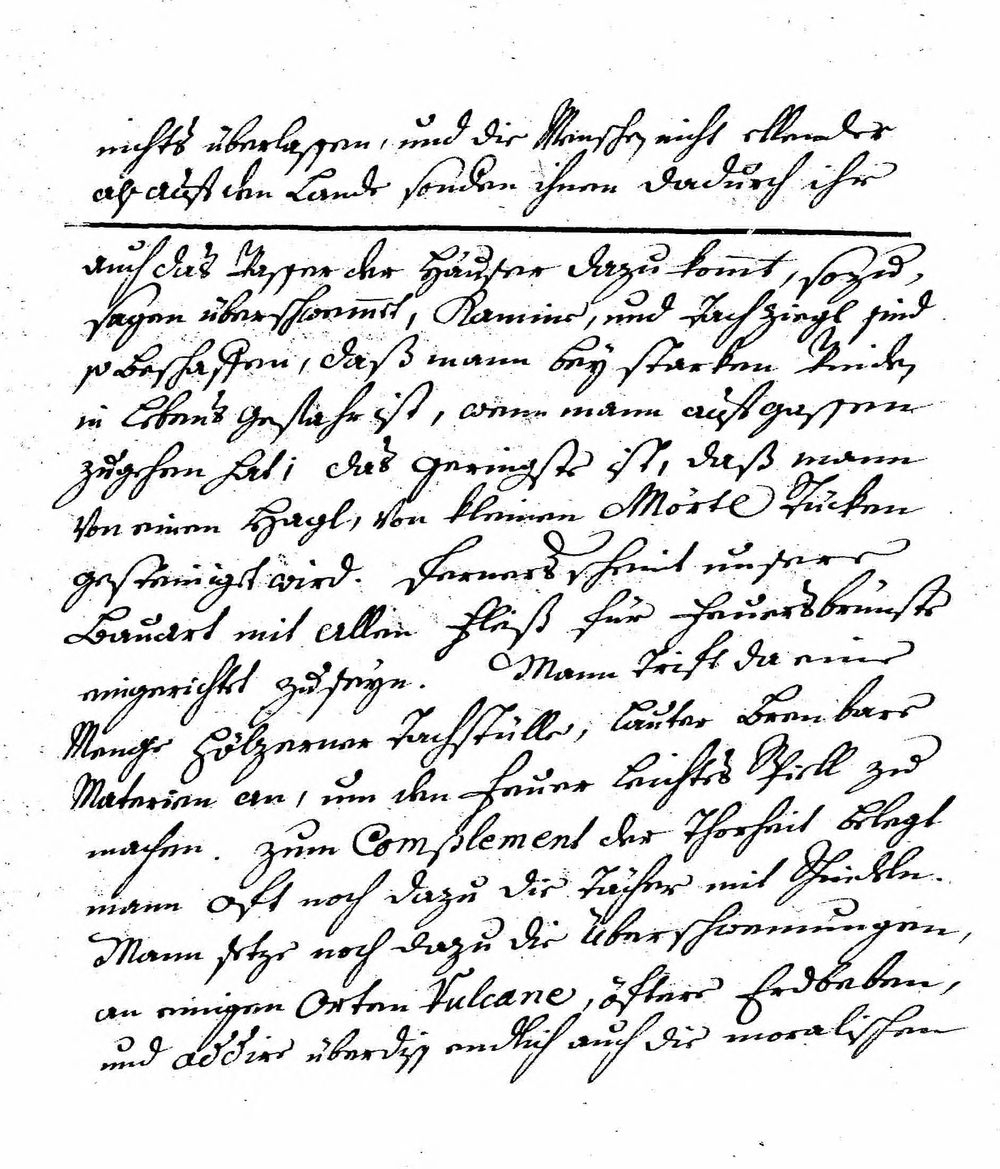 nichts überlassen, und die Menschen nicht ellender
als auf den Lande sonden ihnen dadurch ihr
auch das Wasser der Häuser dazu kom̄t, sozu-
sagen überschwem̄t, Kamine, und Tachziegl sind
so beschaffen, daß mann bey starken Winden
in Lebens gefahr ist, wenn mann auf gassen
zugehen hat; das geringste ist, daß mann
von einen Hagl, von kleinen Mörtl Stücken
gesteiniget wird. Ferners scheint unsere
Bauart mit allen Fleiß für Feuersbrünste
eingerichtet zuseyn. Mann trift da eine
Menge hölzerner Tachstülle, lauter Brenbare
Materien an, um den Feuer leichtes Spiell zu
machen. Zum Complement der Thorheit belegt
mann oft noch dazu die Tächer mit Schindeln.
Mann setze noch dazu die Überschwemungen,
an einigen Orten Vulcane, öftere Erdbeben,
und addire überdiß endlich auch die moralischen